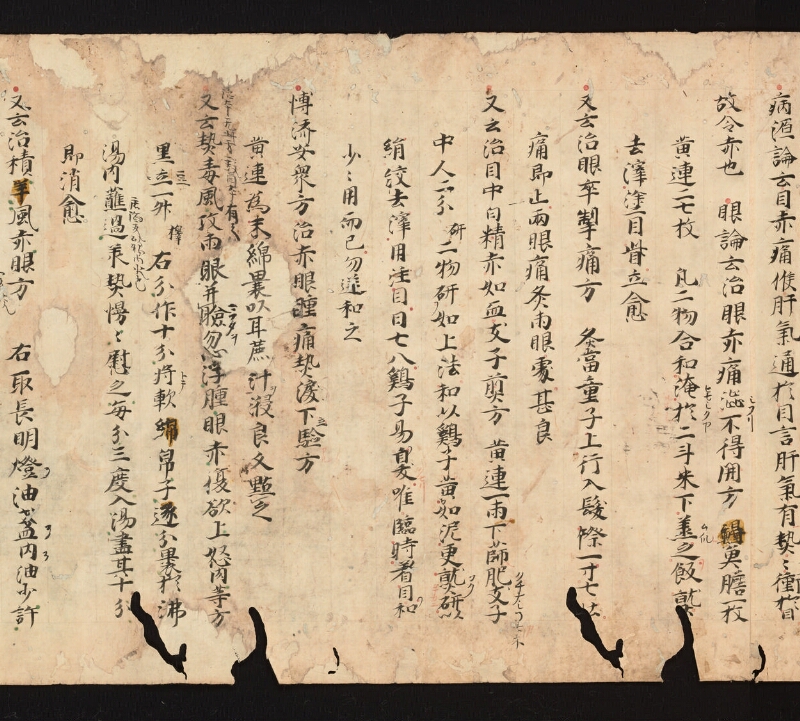 病源論云目赤痛候肝氣通於目言肝氣有熱〻衝於目
故令赤也 眼論云治眼赤痛澁不得開方 膽一枚
黄連二七枚 凡二物合和淹於二斗米下蒸之飯熟
去滓塗目眥立愈
又云治眼卒掣痛方 灸當童子上行入髮際一寸七壮
痛即止兩眼痛灸兩眼處甚良
又云治目中白精赤如血文子 方 黄連一兩下篩肥文子
中人一分 研二物研如上法和以鷄子黄如泥更熟研
絹絞去滓用注目日七八鷄子易 唯臨時看目和
少〻用而已勿 和之
博済安衆方治赤眼腫痛熱淚下驗方
黄連為末綿裹以 汁浸良久點之
又云熱毒風攻兩眼并瞼忽浮腫眼赤 欲上怒肉等方
黒豆一升 擇 右分作十分将軟綿帛子逐分裹於沸
湯内蘸過乗熱慢〻慰之每分三度入湯盡其十分
即消愈
又云治積年風赤眼方 右取長明燈油盞内油少許